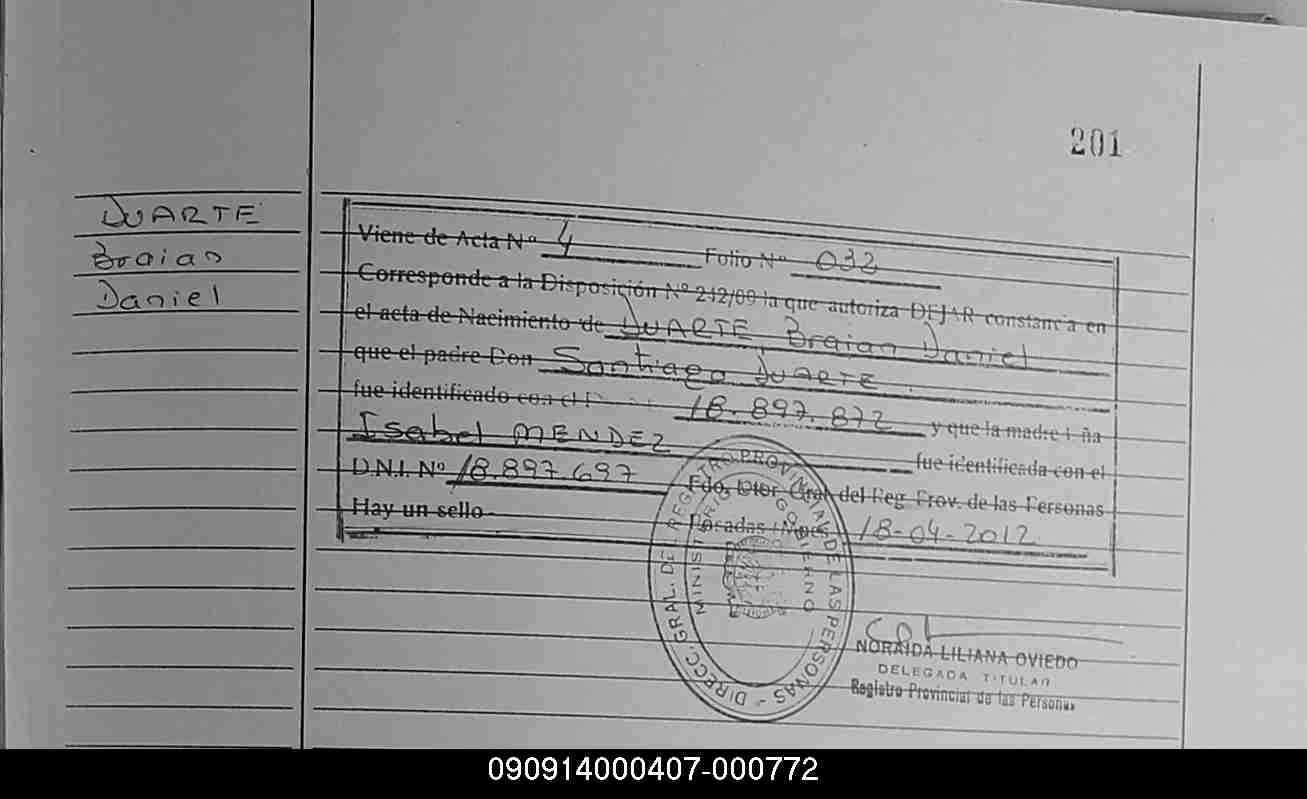 201
DUARTE
Braian
Daniel
Viene de Acta Nº 4 Folio Nº 032
Corresponde a la Disposición Nº 212/09 la que autoriza DEJAR constancia en
el acta de Nacimiento de DUARTE, Braian Daniel
que el padre Don Santiago DUARTE.
fue identificado con el 18.897.872 y que la madre Ña
Isabel MENDEZ fue identificada con el
D.N.I. Nº 18.897.697 Fdo. Dtor. Gral. del Reg. Prov. de las Personas
Hay un sello- Posadas / Mnes 18-04-2012
DIRECC. GRAL. DEL REGISTRO PROVINCIAL DE LAS PERSONAS -
MINISTERIO DE GOBIERNO
NORAIDA LILIANA OVIEDO
DELEGADA TITULAR
Registro Provincial de las Personas
090914000407-000772